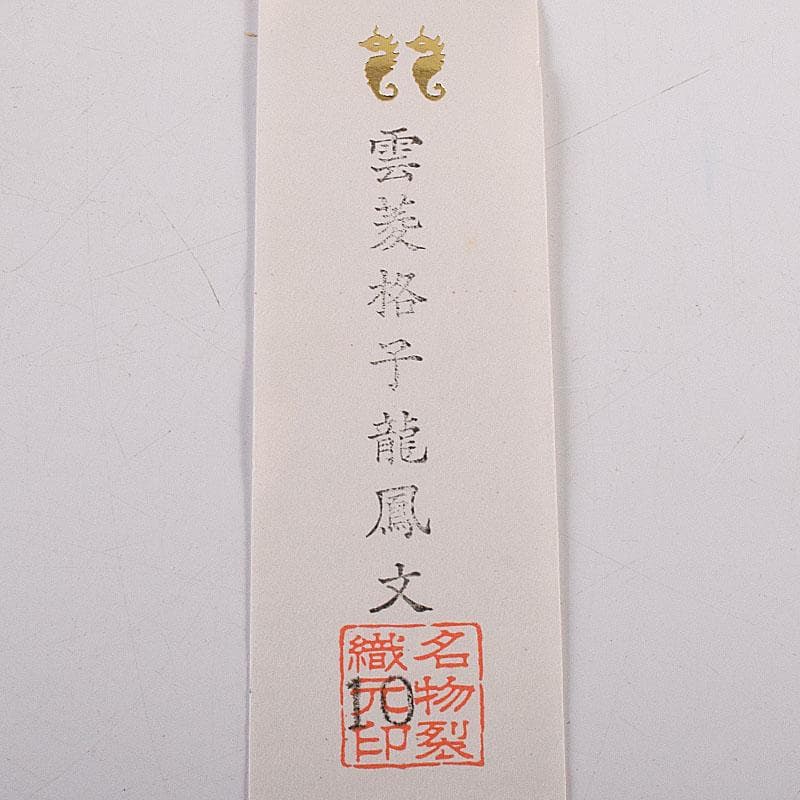 雲菱格子龍鳳文
名物裂
織元印
10